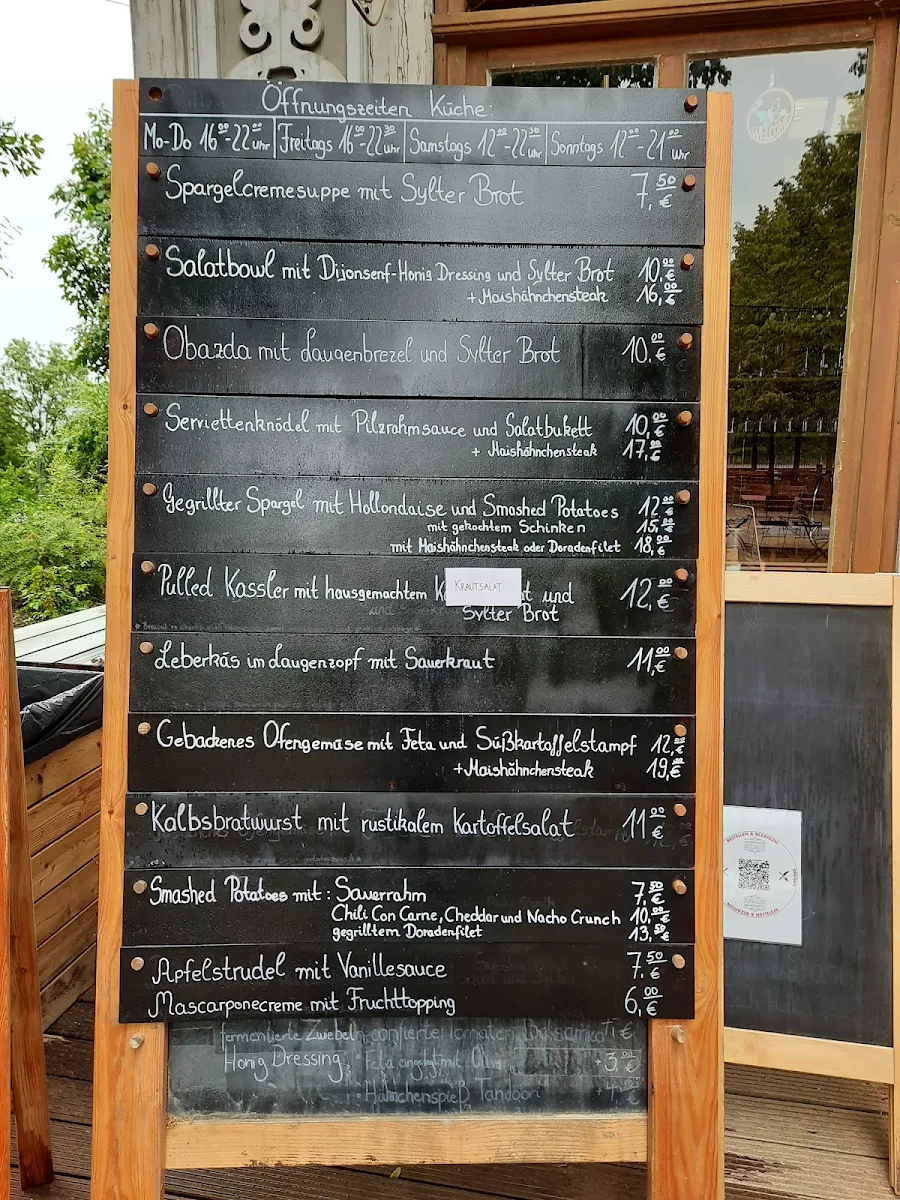 Öffnungszeiten Küche:
Mo-Do 16⁰⁰-22⁰⁰ Uhr | Freitags 16⁰⁰-22³⁰ | Samstags 12⁰⁰-22³⁰ Uhr | Sonntags 12⁰⁰-21⁰⁰ Uhr
Spargelcremesuppe mit Sylter Brot 7,50 €
Salatbowl mit Dijonsenf-Honig Dressing und Sylter Brot 10,00 €
+ Maishähnchensteak 16,00 €
Obazda mit Laugenbrezel und Sylter Brot 10,00 €
Serviettenknödel mit Pilzrahmsauce und Salatbukett 10,00 €
+ Maishähnchensteak 17,00 €
Gegrillter Spargel mit Hollondaise und Smashed Potatoes 12,00 €
mit gekochtem Schinken 15,00 €
mit Maishähnchensteak oder Doradenfilet 18,00 €
Pulled Kassler mit hausgemachtem KRAUTSALAT und 12,00 €
Sylter Brot
Leberkäs im Laugenzopf mit Sauerkraut 11,00 €
Gebackenes Ofengemüse mit Feta und Süßkartoffelstampf 12,00 €
+Maishähnchensteak 19,00 €
Kalbsbratwurst mit rustikalem Kartoffelsalat 11,00 €
Smashed Potatoes mit: Sauerrahm 7,50 €
Chili Con Carne, Cheddar und Nacho Crunch 10,00 €
gegrilltem Doradenfilet 13,50 €
Apfelstrudel mit Vanillesauce 7,50 €
Mascarponecreme mit Fruchttopping 6,00 €
fermentierte Zwiebeln confierte Tomaten Balsamico
Honig Dressing, Feta eingelegt mit +3,00 €
Hähnchenspieß Tandoori
BESTELLEN & BEZAHLEN
BESTELLEN & BEZAHLEN